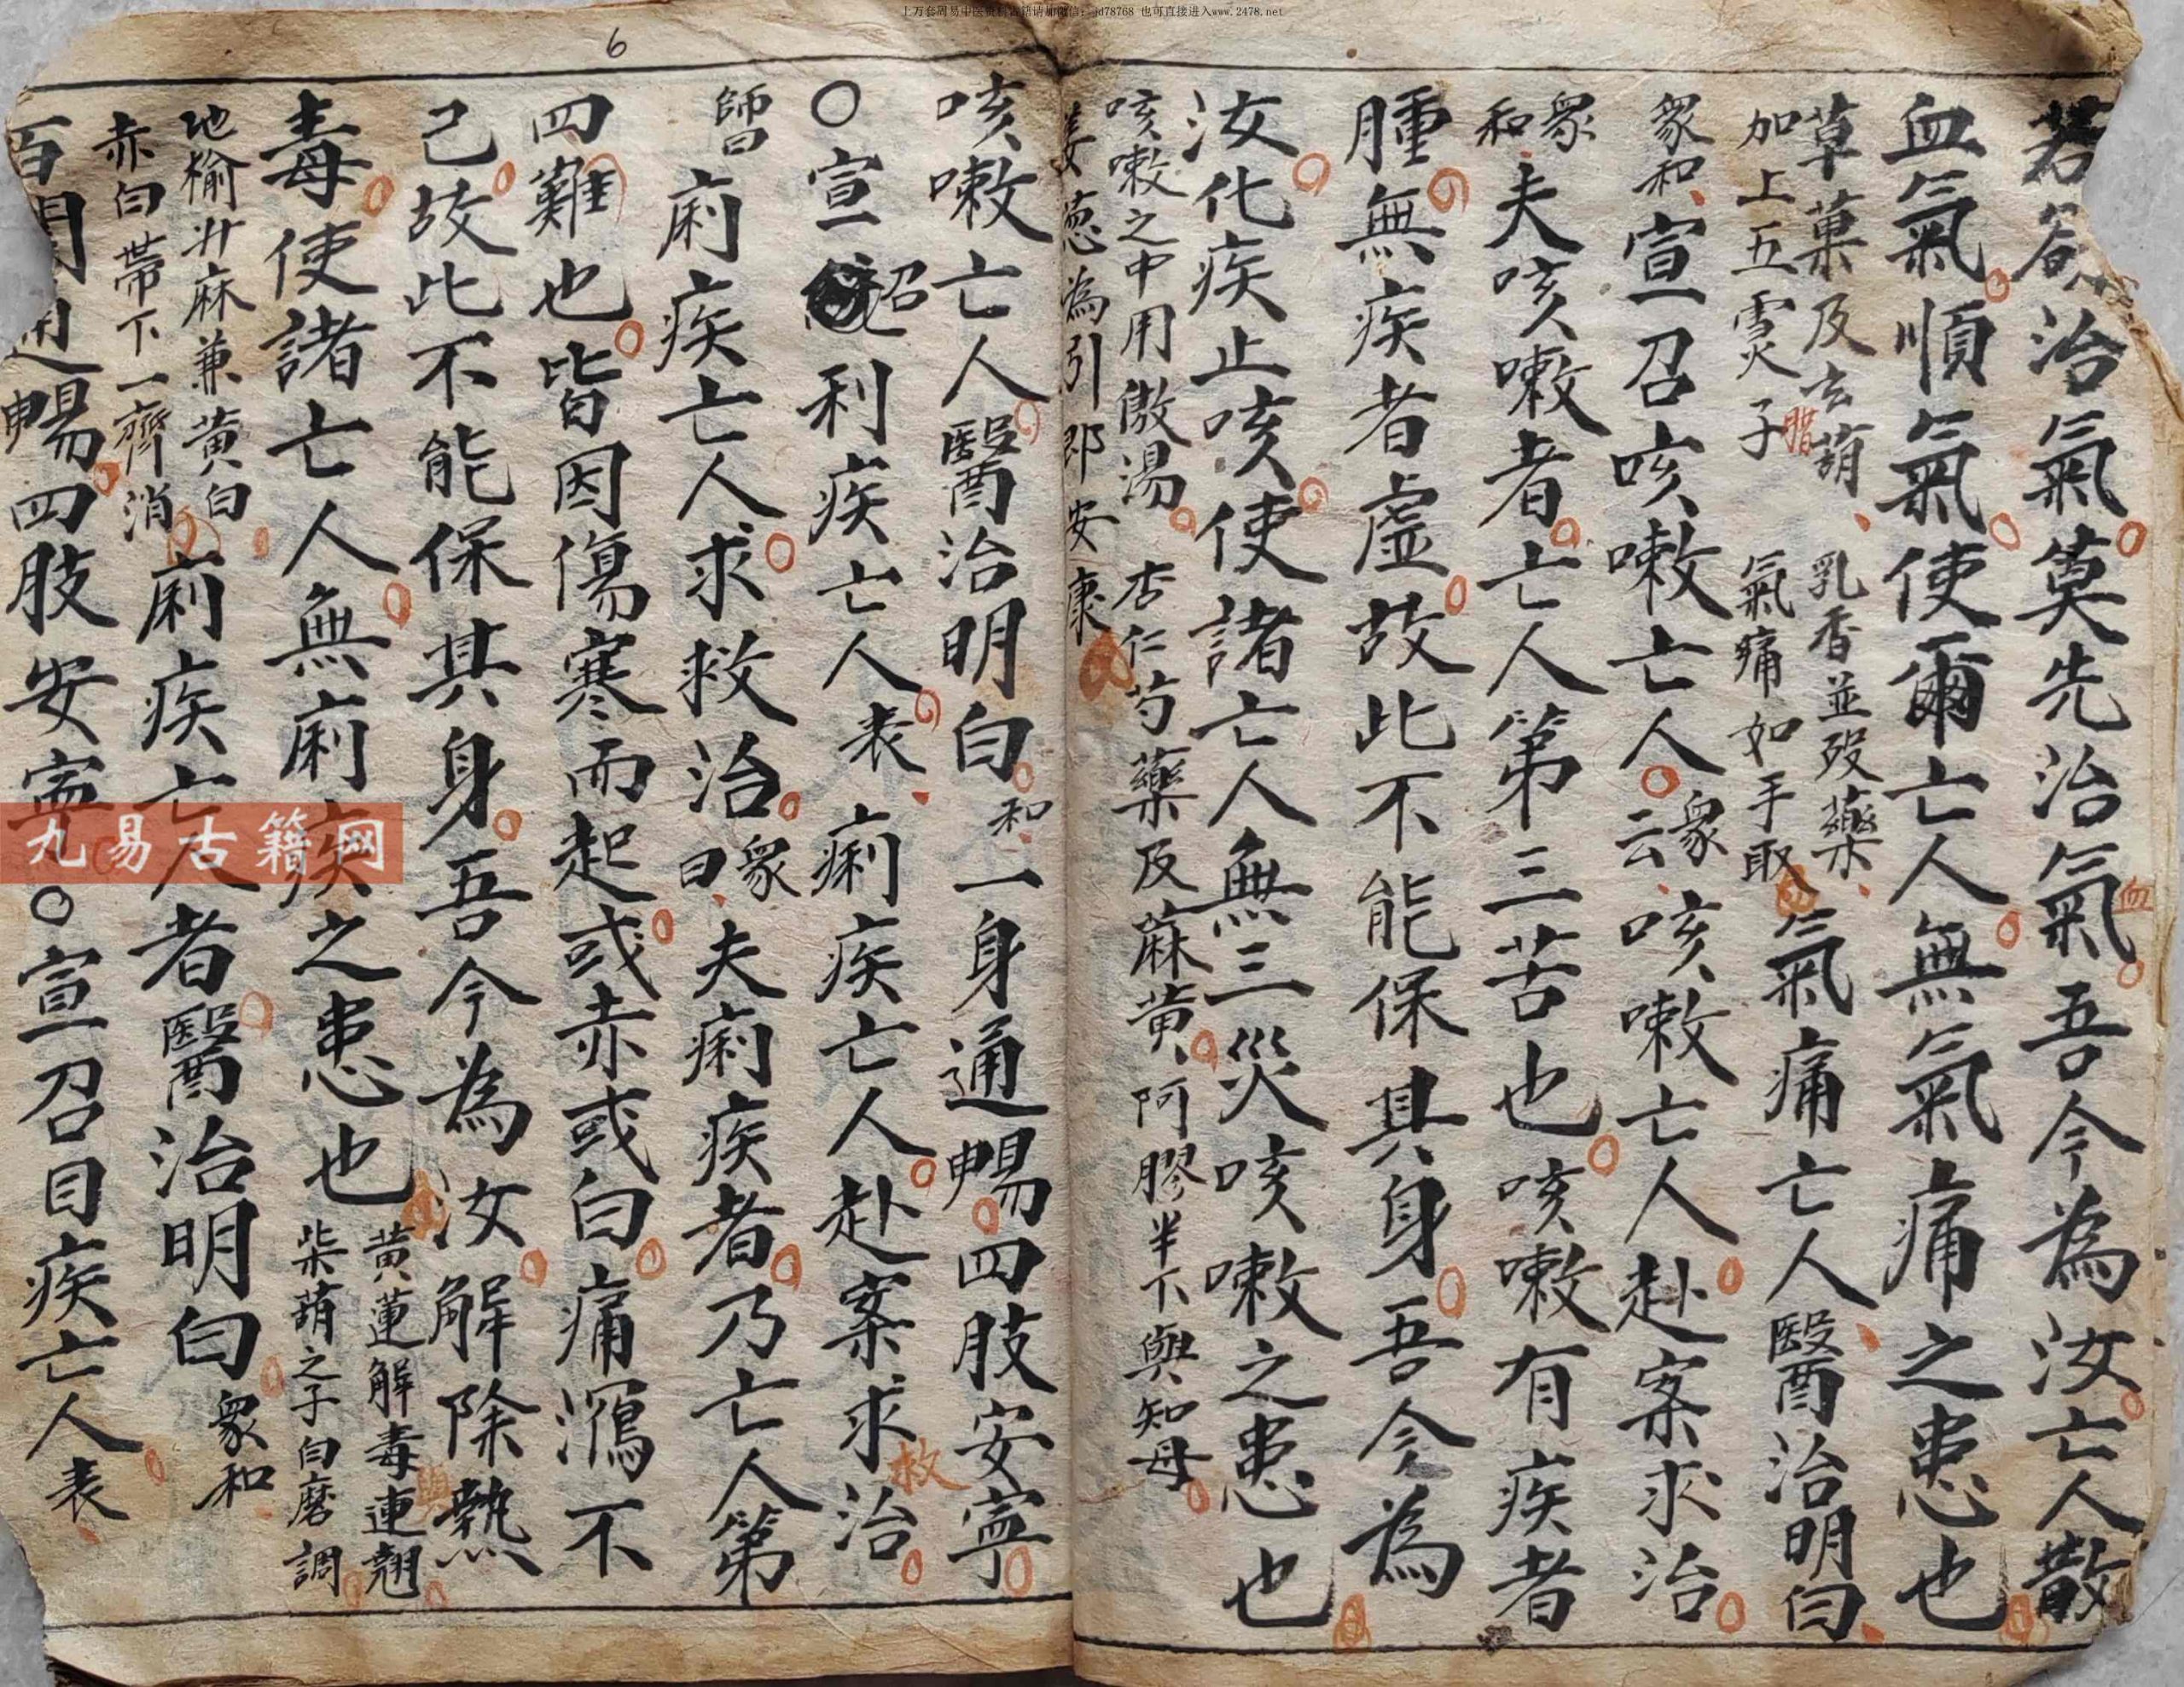 上万套周易中医资料古籍请加微信:jd78768 也可直接进入www.2478.net
6
若欲治氣莫先治氣血吾今為汝亡人散
血氣順氣使爾亡人無氣痛之患也
草菓及玄葫 乳香並歿藥
加上五靈子脂 氣痛如手取
氣痛亡人醫治明白
衆和宣召咳嗽亡人衆云咳嗽亡人赴案求治
衆和夫咳嗽者亡人第三苦也咳嗽有疾者
腫無疾者虛故此不能保其身吾今為
汝化疾止咳使諸亡人無三災咳嗽之患也
咳嗽之中用傲湯 杏仁芍藥及蔴黃 阿膠半下與知母
姜葱為引即安康
咳嗽亡人醫治明白和一身通暢四肢安寧
○宣召利疾亡人表痢疾亡人赴案求救治
師曰痢疾亡人求救治衆曰夫痢疾者乃亡人第
四難也皆因傷寒而起或赤或白痛瀉不
己故此不能保其身吾今為汝解除熱
毒使諸亡人無痢疾之患也
黃蓮解毒與連翹
柴葫之子白磨調
地榆升麻兼黃白
赤白帶下一齊消
痢疾亡人者醫治明白衆和
百關通暢四肢安寧○宣召目疾亡人表
九易古籍网